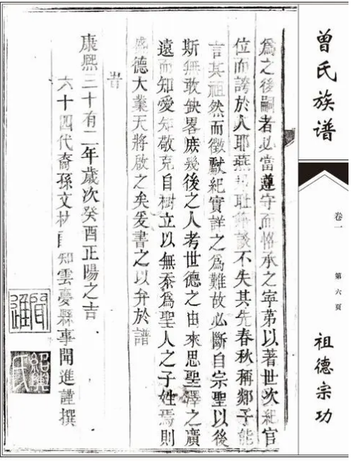 曾氏族谱
卷一
第六页
祖德宗功
為之後嗣者必當遵守而恪承之寧第以著世次紀官
位而誇於人耶燕
談不失其先春秋稱郯子能
言其祖然而徵獻紀實詳之為難故必斷自宗聖以後
斯無敢缺畧庶幾後之人考世德之由來思聖澤之廣
遠而知愛知敬克自樹立以無忝為聖人之子姓焉則
盛德大業天將啟之矣爰書之以弁於譜
旹
康熙三十有二年歲次癸酉正陽之吉
六十四代裔孫文材
知雲夢縣事聞進謹撰
聞進